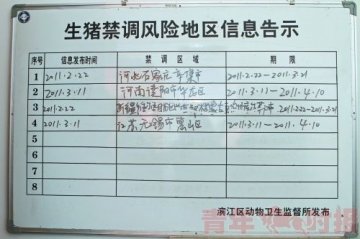 生猪禁调风险地区信息告示
序号 信息发布时间 禁调区域 期限
1 2011.2.22 河北石家庄辛集市 2011.2.22—2011.3.21
2 2011.3.11 河南濮阳市华龙区 2011.3.11—2011.4.10
3 2011.2.22 新疆 2011.2.22—2011.3.21
4 2011.3.11 江苏无锡市惠山区 2011.3.11—2011.4.10
5
6
7
8
滨江区动物卫生监督所发布
青年时报